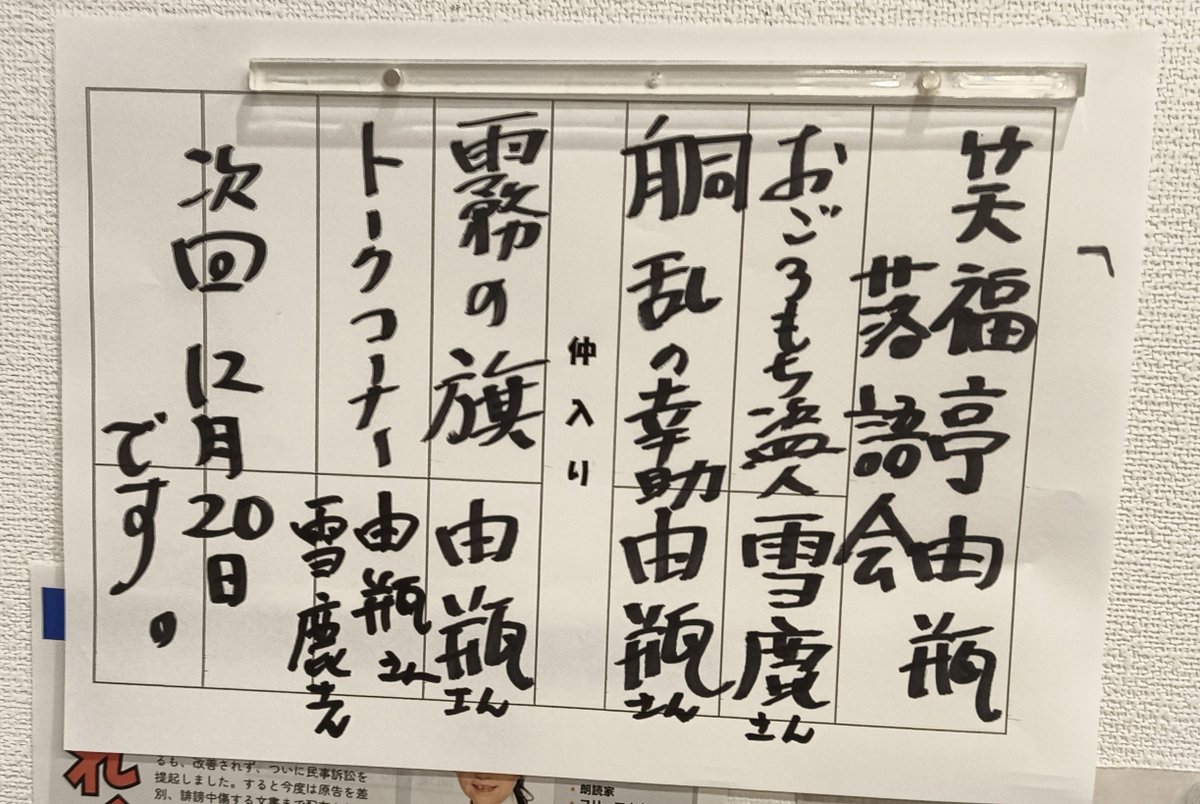 笑福亭由瓶
落語会
おごろもち盗人 雪鹿さん
胴乱の幸助 由瓶さん
仲入り
霧の旗 由瓶さん
トークコーナー 由瓶さん
雪鹿さん
次回12月20日
です。
れ
るも、改善されず、ついに民事訴訟を
提起しました。すると今度は原告を差
別、誹謗中傷する文書まで
・朗読家